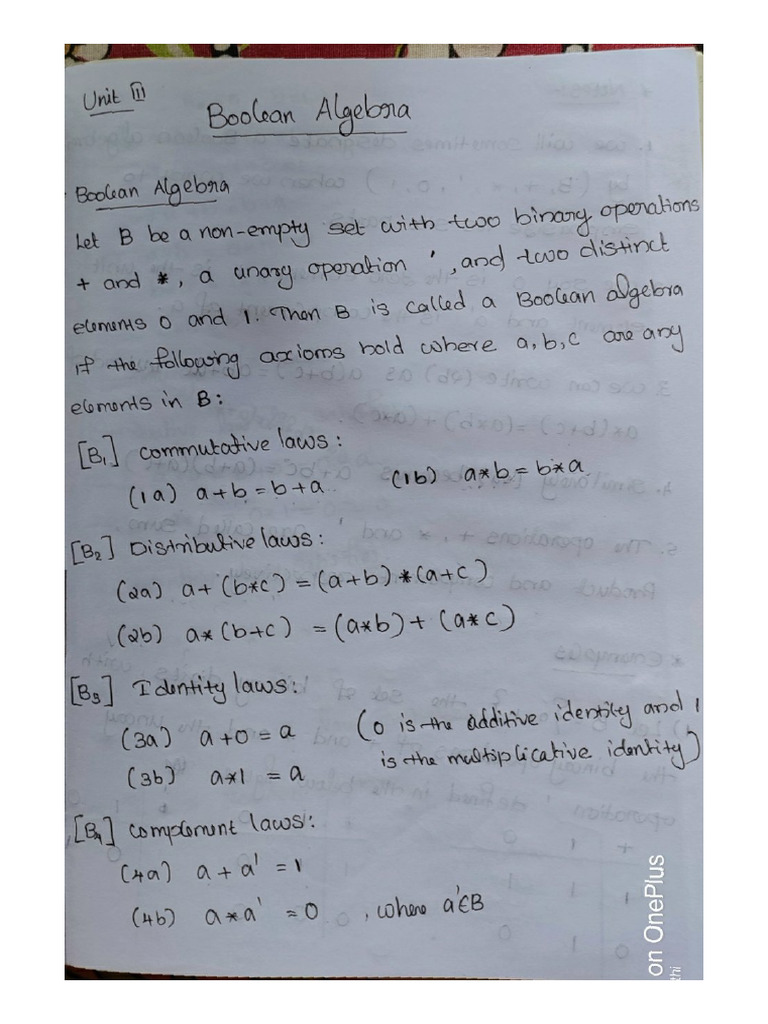 Unit II
Boolean Algebra
Boolean Algebra
Let B be a non-empty set with two binary operations
+ and *, a unary operation ', and two distinct
elements 0 and 1. Then B is called a Boolean algebra
if the following axioms hold where a, b, c are any
elements in B:
[B₁] commutative laws:
(1a) a+b = b+a (1b) a*b = b*a
[B₂] Distributive laws:
(2a) a + (b*c) = (a+b) * (a+c)
(2b) a* (b+c) = (a*b) + (a*c)
[B₃] Identity laws:
(3a) a+0 = a (0 is the additive identity and 1
(3b) a*1 = a is the multiplicative identity)
[B₄] complement laws:
(4a) a + a' = 1
(4b) a * a' = 0 , where a'∈B
on OnePlus
thi